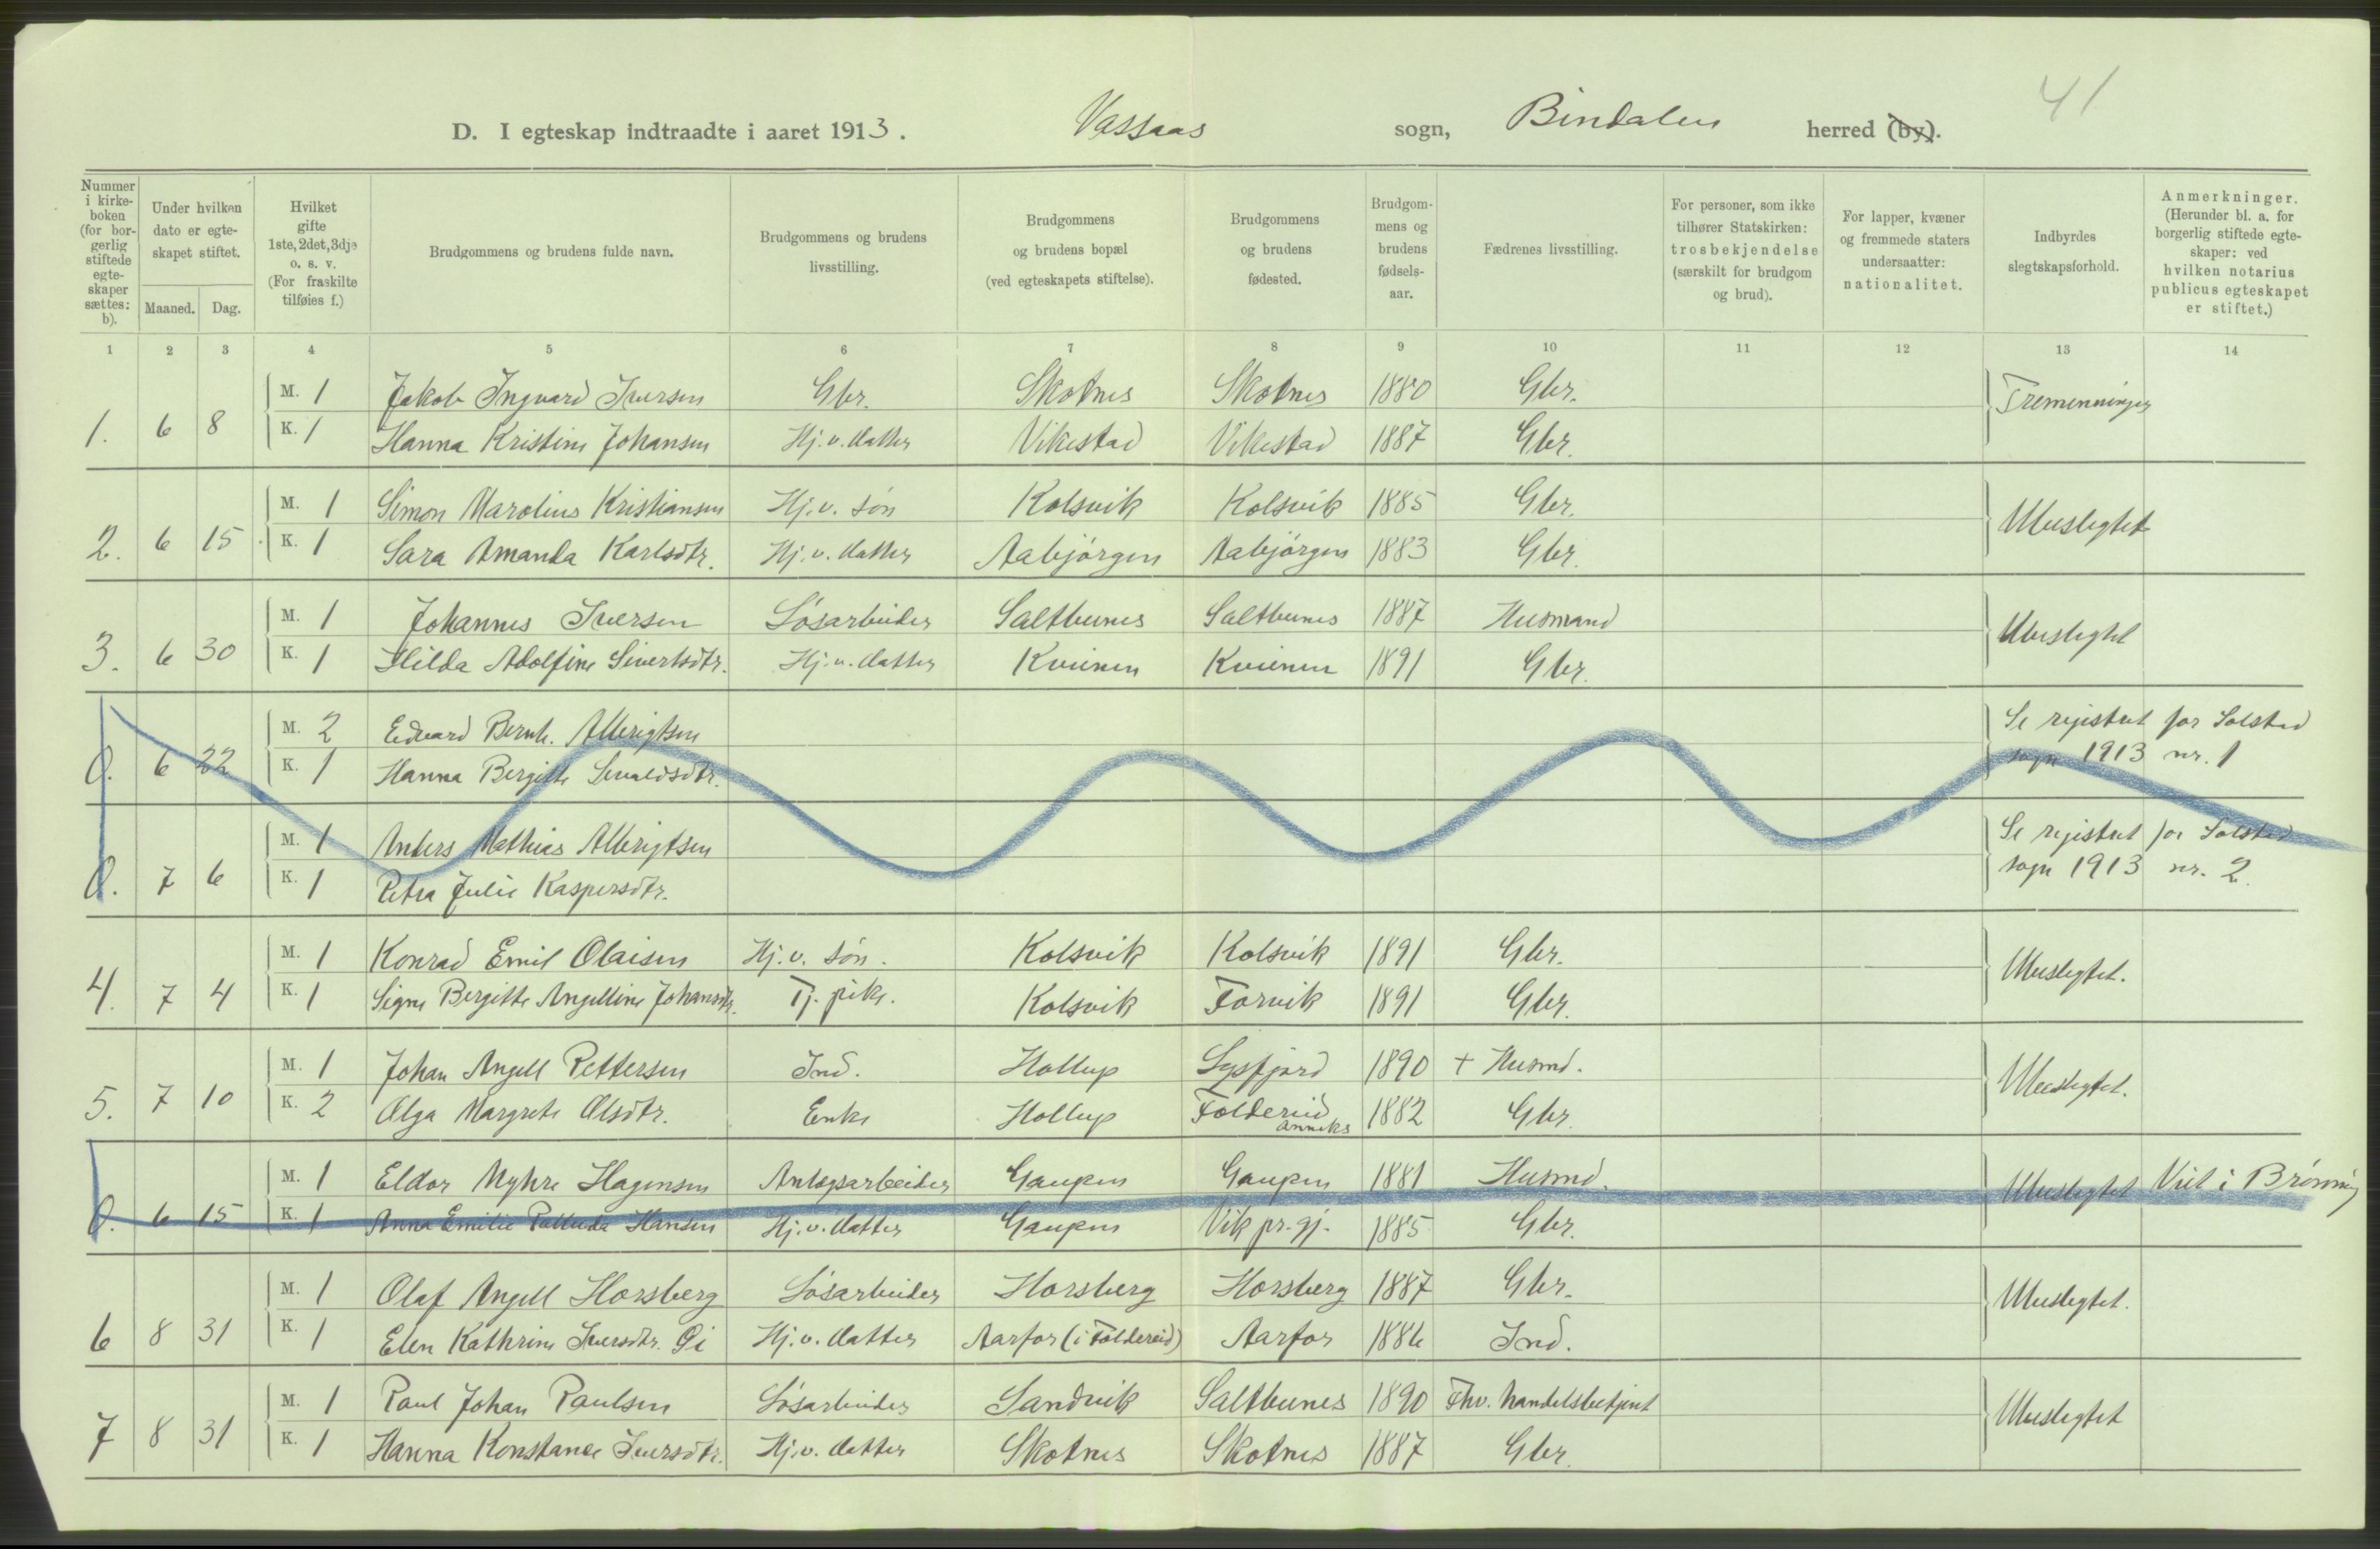 41
D. I egteskap indtraadte i aaret 1913. Vassaas sogn, Bindalen herred (by).
Nummer i kirke-boken (for bor-gerlig stiftede egte-skaper sættes: b).
Under hvilken dato er egte-skapet stiftet.
Maaned. Dag.
Hvilket gifte 1ste, 2det, 3dje o. s. v. (For fraskilte tilføies f.)
Brudgommens og brudens fulde navn.
Brudgommens og brudens livsstilling.
Brudgommens og brudens bopæl (ved egteskapets stiftelse).
Brudgommens og brudens fødested.
Brudgom-mens og brudens fødsels-aar.
Fædrenes livsstilling.
For personer, som ikke tilhører Statskirken: trosbekjendelse (særskilt for brudgom og brud).
For lapper, kvæner og fremmede staters undersaatter: nationalitet.
Indbyrdes slegtskapsforhold.
Anmerkninger. (Herunder bl. a. for borgerlig stiftede egte-skaper: ved hvilken notarius publicus egteskapet er stiftet.)
1 2 3 4 5 6 7 8 9 10 11 12 13 14
M. 1 Jakob Ingvard Iversen Gbr. Skotnes Skotnes 1880 Gbr. Tremenninger
1. 6 8 K. 1 Hanna Kristine Johansen Hj.v. datter Vikestad Vikestad 1887 Gbr.
M. 1 Simon Marolius Kristiansen Hj.v. søn Kolsvik Kolsvik 1885 Gbr. Ubeslegtet
2. 6 15 K. 1 Sara Amanda Karlsdtr. Hj.v. datter Aabjörgen Aabjörgen 1883 Gbr.
M. 1 Johannes Iversen Løsarbeider Saltbunes Saltbunes 1887 Husmand Ubeslegtet
3. 6 30 K. 1 Hilda Adolfine Sivertsdtr. Hj.v. datter Kveinen Kveinen 1891 Gbr.
M. 2 Edvard Bernh. Albrigtsen Se registret for Solstad
0. 6 22 K. 1 Hanna Bergitte Sevaldsdtr. sogn 1913 nr. 1
M. 1 Anders Mathias Albrigtsen Se registret for Solstad
0. 7 6 K. 1 Petra Julie Kaspersdtr. sogn 1913 nr. 2.
M. 1 Konrad Emil Olaisen Hj.v. søn. Kolsvik Kolsvik 1891 Gbr. Ubeslegtet.
4. 7 4 K. 1 Signe Bergitte Angelline Johansdtr. Tj. pike. Kolsvik Forvik 1891 Gbr.
M. 1 Johan Angell Pettersen Ind. Hollup Lysfjord 1890 + Husmd. Ubeslegtet.
5. 7 10 K. 2 Olga Margrete Olsdtr. Enke Hollup Foldereid anneks 1882 Gbr.
M. 1 Eldor Myhre Hagensen Anlægsarbeider Gaupen Gaupen 1881 Husmd. Ubeslegtet Viet i Brønnø
0. 6 15 K. 1 Anna Emilie Hansen Hj.v. datter Gaupen Vik pr.gj. 1885 Gbr.
M. 1 Olaf Angell Horsberg Løsarbeider Horsberg Horsberg 1887 Gbr. Ubeslegtet.
6 8 31 K. 1 Elen Kathrine Iversdtr. Øi Hj.v. datter Aarfor (i Foldereid) Aarfor 1886 Ind.
M. 1 Paul Johan Paulsen Løsarbeider Sandvik Saltbunes 1890 Fhv. handelsbetjent Ubeslegtet
7 8 31 K. 1 Hanna Konstance Iversdtr. Hj.v. datter Skotnes Skotnes 1887 Gbr.